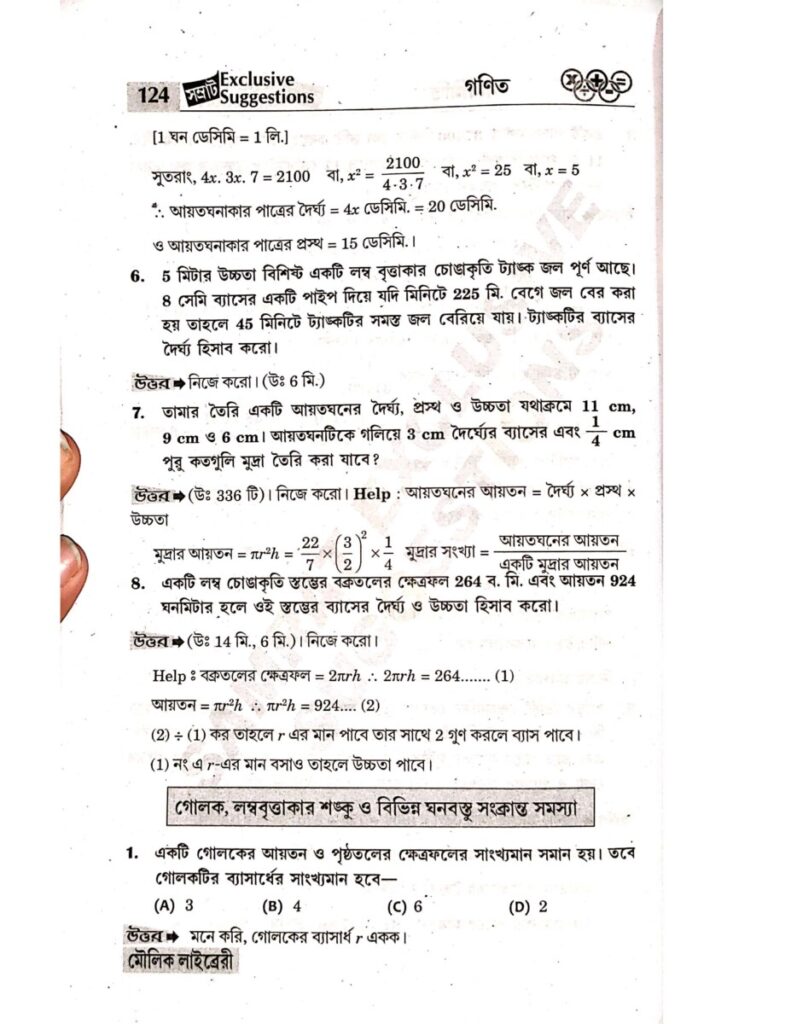 124 সম্রাট Exclusive Suggestions গণিত
[1 ঘন ডেসিমি = 1 লি.]
সুতরাং, 4x. 3x. 7 = 2100 বা, x² = 2100/4·3·7 বা, x² = 25 বা, x = 5
∴ আয়তঘনাকার পাত্রের দৈর্ঘ্য = 4x ডেসিমি. = 20 ডেসিমি.
ও আয়তঘনাকার পাত্রের প্রস্থ = 15 ডেসিমি.।
6. 5 মিটার উচ্চতা বিশিষ্ট একটি লম্ব বৃত্তাকার চোঙাকৃতি ট্যাঙ্ক জল পূর্ণ আছে।
8 সেমি ব্যাসের একটি পাইপ দিয়ে যদি মিনিটে 225 মি. বেগে জল বের করা
হয় তাহলে 45 মিনিটে ট্যাঙ্কটির সমস্ত জল বেরিয়ে যায়। ট্যাঙ্কটির ব্যাসের
দৈর্ঘ্য হিসাব করো।
উত্তর ➡ নিজে করো। (উঃ 6 মি.)
7. তামার তৈরি একটি আয়তঘনের দৈর্ঘ্য, প্রস্থ ও উচ্চতা যথাক্রমে 11 cm,
9 cm ও 6 cm। আয়তঘনটিকে গলিয়ে 3 cm দৈর্ঘ্যের ব্যাসের এবং 1/4 cm
পুরু কতগুলি মুদ্রা তৈরি করা যাবে?
উত্তর ➡ (উঃ 336 টি)। নিজে করো। Help : আয়তঘনের আয়তন = দৈর্ঘ্য × প্রস্থ ×
উচ্চতা
মুদ্রার আয়তন = πr²h = 22/7 × (3/2)² × 1/4 মুদ্রার সংখ্যা = আয়তঘনের আয়তন/একটি মুদ্রার আয়তন
8. একটি লম্ব চোঙাকৃতি স্তম্ভের বক্রতলের ক্ষেত্রফল 264 ব. মি. এবং আয়তন 924
ঘনমিটার হলে ওই স্তম্ভের ব্যাসের দৈর্ঘ্য ও উচ্চতা হিসাব করো।
উত্তর ➡ (উঃ 14 মি., 6 মি.)। নিজে করো।
Help : বক্রতলের ক্ষেত্রফল = 2πrh ∴ 2πrh = 264....... (1)
আয়তন = πr²h ∴ πr²h = 924.... (2)
(2) ÷ (1) কর তাহলে r এর মান পাবে তার সাথে 2 গুণ করলে ব্যাস পাবে।
(1) নং এ r-এর মান বসাও তাহলে উচ্চতা পাবে।
গোলক, লম্ববৃত্তাকার শঙ্কু ও বিভিন্ন ঘনবস্তু সংক্রান্ত সমস্যা
1. একটি গোলকের আয়তন ও পৃষ্ঠতলের ক্ষেত্রফলের সাংখ্যমান সমান হয়। তবে
গোলকটির ব্যাসার্ধের সাংখ্যমান হবে—
(A) 3 (B) 4 (C) 6 (D) 2
উত্তর ➡ মনে করি, গোলকের ব্যাসার্ধ r একক।
মৌলিক লাইব্রেরী
SAMRAT EXCLUSIVE
SUGGESTIONS